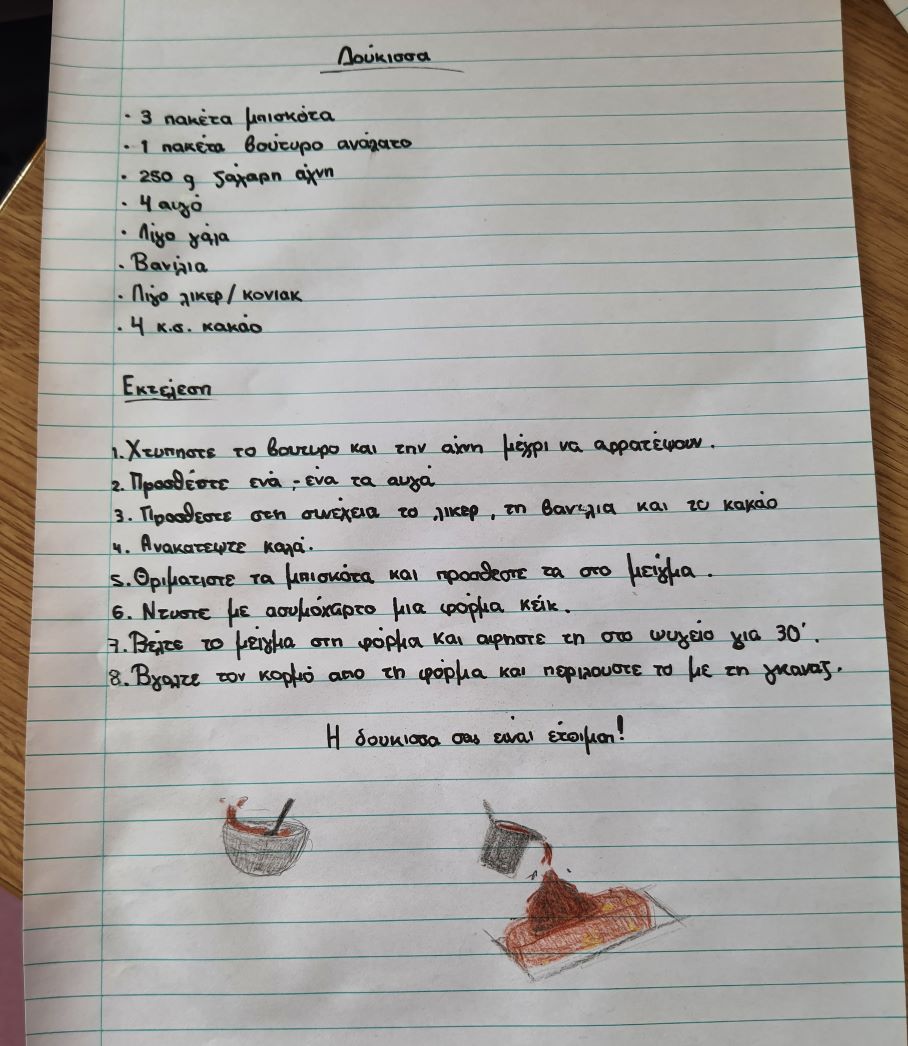 Δούκισσα
· 3 πακέτα μπισκότα
· 1 πακέτα βούτυρο ανάλατο
· 250 g ζάχαρη άχνη
· 4 αυγό
· Λίγο γάλα
· Βανίλια
· Λίγο λικερ / κονιακ
· 4 κ.σ. κακάο
Εκτελεση
1. Χτυπηστε το βουτυρο και την άχνη μέχρι να αφρατέψουν.
2. Προσθέστε ενά - ένα τα αυγά
3. Προσθεστε στη συνέχεια το λικερ, τη βανιλια και το κακάο
4. Ανακατεψτε καλά.
5. Θριματιστε τα μπισκότα και προσθεστε τα στο μείγμα.
6. Ντυστε με ασυμόχαρτο μια φόρμα κέικ.
7. Βάλτε το μείγμα στη φόρμα και αφηστε τη στο ψυγείο για 30'.
8. Βγαλτε τον κορμό απο τη φόρμα και περιλουστε το με τη γκαναζ.
Η δουκισσα σας είναι έτοιμη!